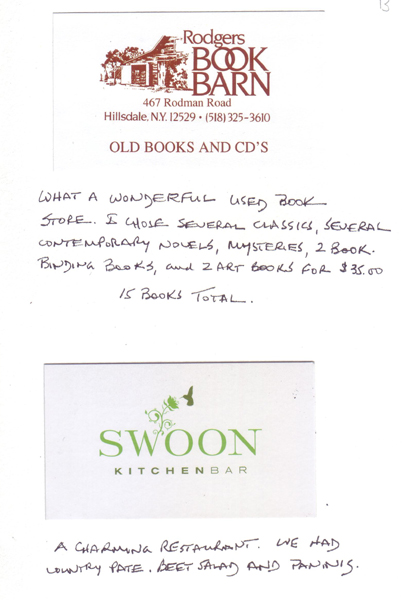 13
Rodgers
BOOK
BARN
467 Rodman Road
Hillsdale, N.Y. 12529 • (518) 325-3610
OLD BOOKS AND CD'S
WHAT A WONDERFUL USED BOOK
STORE. I CHOSE SEVERAL CLASSICS, SEVERAL
CONTEMPORARY NOVELS, MYSTERIES, 2 BOOK.
BINDING BOOKS, and 2 ART BOOKS FOR $35.00
15 BOOKS TOTAL.
SWOON
KITCHENBAR
A CHARMING RESTAURANT. WE HAD
COUNTRY PATE. BEET SALAD AND PANINIS.